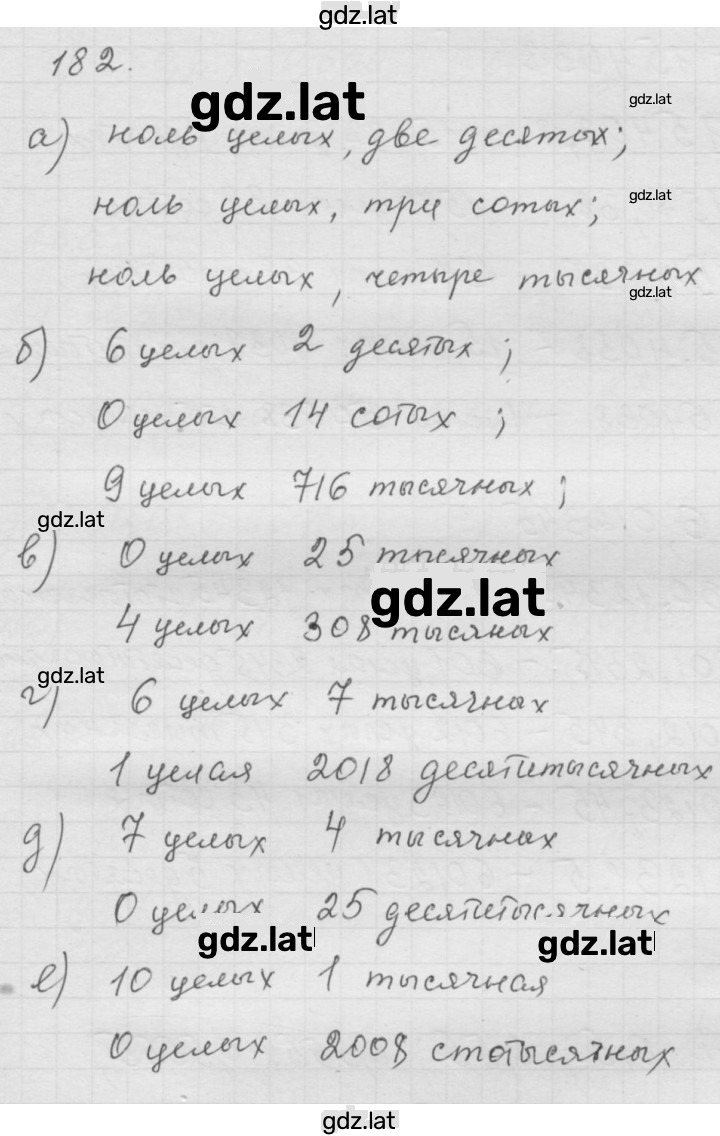 gdz.lat
182.
gdz.lat
gdz.lat
а) ноль целых, две десятых;
gdz.lat
ноль целых, три сотых;
ноль целых, четыре тысячных
gdz.lat
б) 6 целых 2 десятых;
0 целых 14 сотых;
9 целых 716 тысячных;
gdz.lat
в) 0 целых 25 тысячных
gdz.lat
4 целых 308 тысяных
gdz.lat
г) 6 целых 7 тысячных
1 целая 2018 десятитысячных
д) 7 целых 4 тысячных
0 целых 25 десятитысячных
gdz.lat
gdz.lat
е) 10 целых 1 тысячная
0 целых 2008 стотысячных
gdz.lat